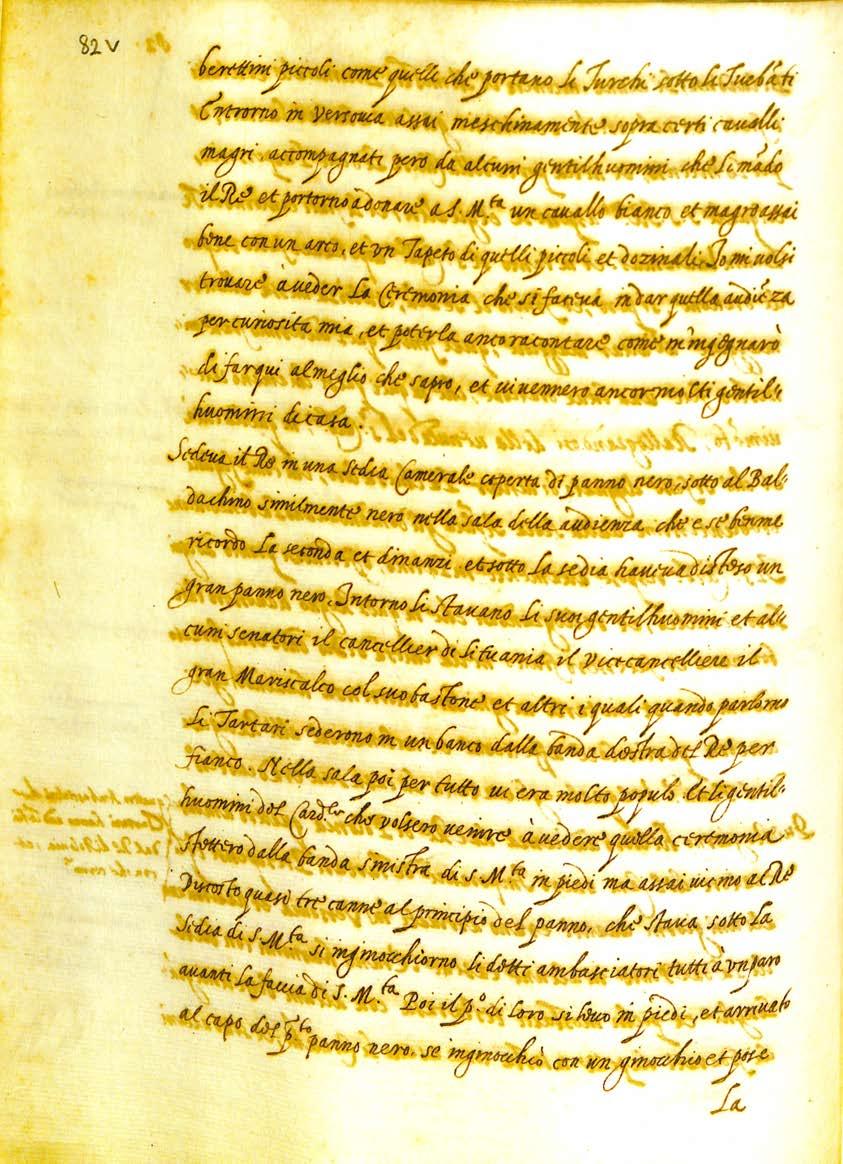 82 v
berettini piccoli come quelli che portano li Turchi sotto li Tuebāti
Entrorno in Versovia assai meschinamente sopra certi cavalli
magri, accompagnati pero da alcuni gentilhuomini che li mādo
il Re et portorno a donare a S. M.ta un cavallo bianco et magro assai
bene con un arco, et un Tapeto di quelli piccoli et dozinali. Io mi volsi
trovare à veder la Ceremonia che si faceva in dar quella audiēza
per curiosita mia, et poterla anco racontare come m'ingegnarò
di far qui al meglio che sapro, et vi vennero ancor molti gentil-
huomini di casa.
Sedeva il Re in una sedia Camerale coperta di panno nero, sotto al Bal-
dachino similmente nero nella sala della audienza che e se ben me
ricordo la seconda et dinanzi et sotto la sedia haveva disteso un
gran panno nero. Intorno li stavano li suoi gentilhuomini et al-
cuni senatori il cancellier di Lituania il vicecancelliere il
gran Mariscalco col suo bastone et altri i quali quando parlorno
li Tartari sederono in un banco dalla banda destra del Re per
fianco. Nella sala poi per tutto vi era molto populo. Et li gentil-
huomini del Card.le che volsero venire à vedere quella ceremonia
stettero dalla banda sinistra di S. M.ta in piedi ma assai vicino al Re
Discosto quasi tre canne al principio del panno, che stava sotto la
Sedia di S. M.ta si inginocchiorno li detti ambasciatori tutti à un paro
avanti la faccia di S. M.ta Poi il p.o di loro si levo in piedi, et arrivato
al capo del p.to panno nero, se inginocchiò con un ginocchio et pose
La